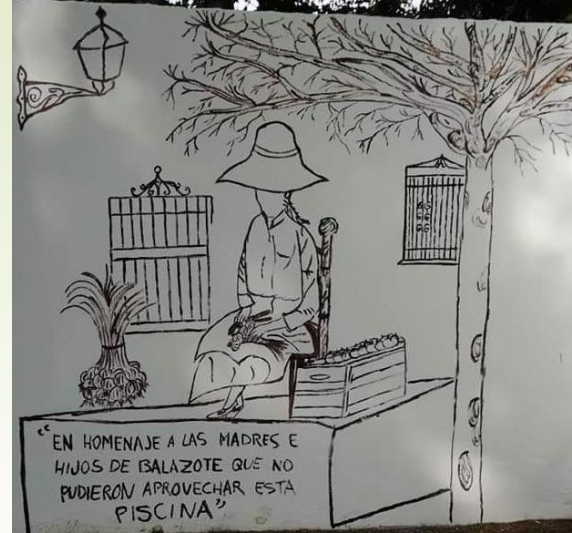 “EN HOMENAJE A LAS MADRES E
HIJOS DE BALAZOTE QUE NO
PUDIERON APROVECHAR ESTA
PISCINA”